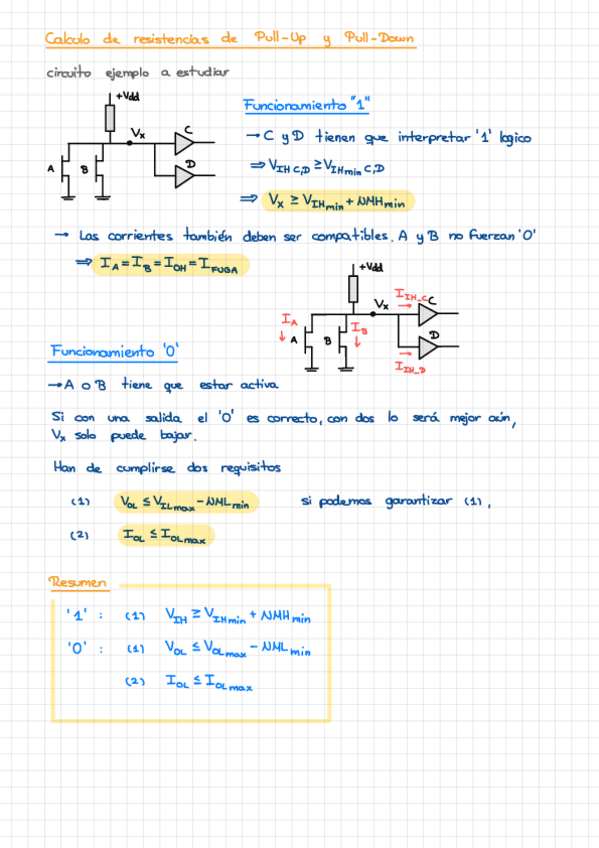 Calculo de resistencias de Pull-Up y Pull-Down
circuito ejemplo a estudiar
+Vdd
Vx
C
D
A
B
Funcionamiento "1"
→ C y D tienen que interpretar '1' logico
⇒ V_IH C,D ≥ V_IHmin C,D
⇒ Vx ≥ V_IHmin + NMH_min
→ Las corrientes también deben ser compatibles. A y B no fuerzan '0'
⇒ I_A = I_B = I_OH = I_FUGA
+Vdd
Vx
I_IH_C
C
I_A
A
B
I_B
D
I_IH_D
Funcionamiento '0'
→ A o B tiene que estar activa
Si con una salida el '0' es correcto, con dos lo será mejor aún,
Vx solo puede bajar.
Han de cumplirse dos requisitos
(1) V_OL ≤ V_ILmax - NML_min si podemos garantizar (1),
(2) I_OL ≤ I_OLmax
Resumen
'1' : (1) V_IH ≥ V_IHmin + NMH_min
'0' : (1) V_OL ≤ V_OLmax - NML_min
(2) I_OL ≤ I_OLmax